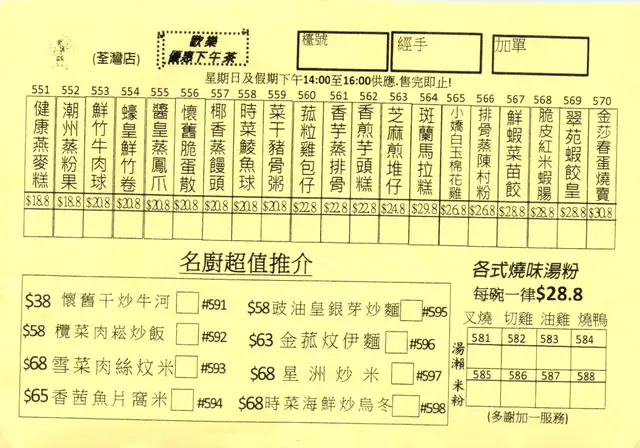 (荃灣店)
歡樂
優惠下午茶
檯號
經手
加單
星期日及假期下午14:00至16:00供應.售完即止!
551 健康燕麥糕 $18.8
552 潮州蒸粉果 $18.8
553 鮮竹牛肉球 $20.8
554 蠔皇鮮竹卷 $20.8
555 醬皇蒸鳳爪 $20.8
556 懷舊脆蛋散 $20.8
557 椰香蒸饅頭 $20.8
558 時菜鯪魚球 $20.8
559 菜干豬骨粥 $20.8
560 菰粒雞包仔 $22.8
561 香芋蒸排骨 $22.8
562 香煎芋頭糕 $22.8
563 芝麻煎堆仔 $24.8
564 斑蘭馬拉糕 $29.8
565 小嬌白玉棉花雞 $26.8
566 排骨蒸陳村粉 $26.8
567 鮮蝦菜苗餃 $28.8
568 脆皮紅米蝦腸 $28.8
569 翠苑蝦餃皇 $28.8
570 金莎春蛋燒賣 $30.8
名廚超值推介
$38 懷舊干炒牛河 #591
$58 欖菜肉崧炒飯 #592
$68 雪菜肉絲炆米 #593
$65 香茜魚片窩米 #594
$58 豉油皇銀芽炒麵 #595
$63 金菰炆伊麵 #596
$68 星洲炒米 #597
$68 時菜海鮮炒烏冬 #598
各式燒味湯粉
每碗一律$28.8
叉燒 切雞 油雞 燒鴨
湯瀨 581 582 583 584
米粉 585 586 587 588
(多謝加一服務)